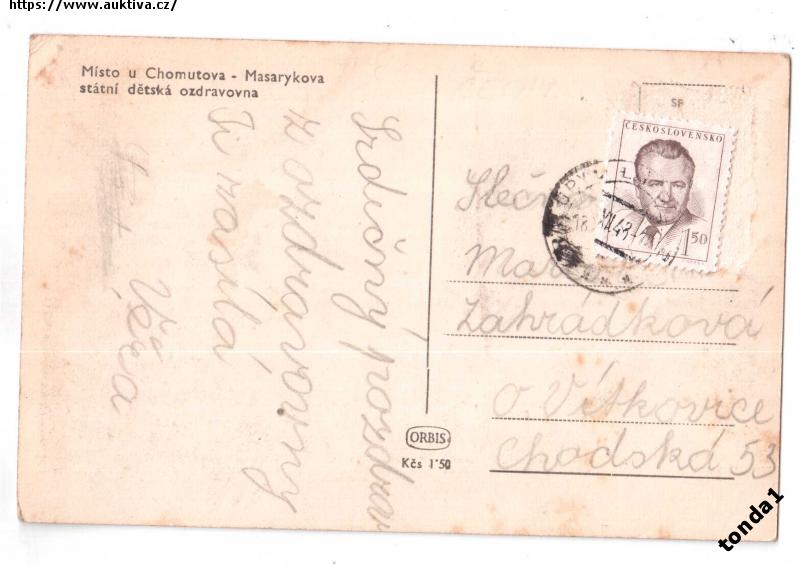 https://www.auktiva.cz/
Místo u Chomutova - Masarykova
státní dětská ozdravovna
Srdečný pozdrav
z ozdravovny
Ti zasílá
Věra
ORBIS
Kčs 1·50
SP
ČESKOSLOVENSKO
1 50
Zahrádková
O. Vítkovice
Chodská 53
tonda1